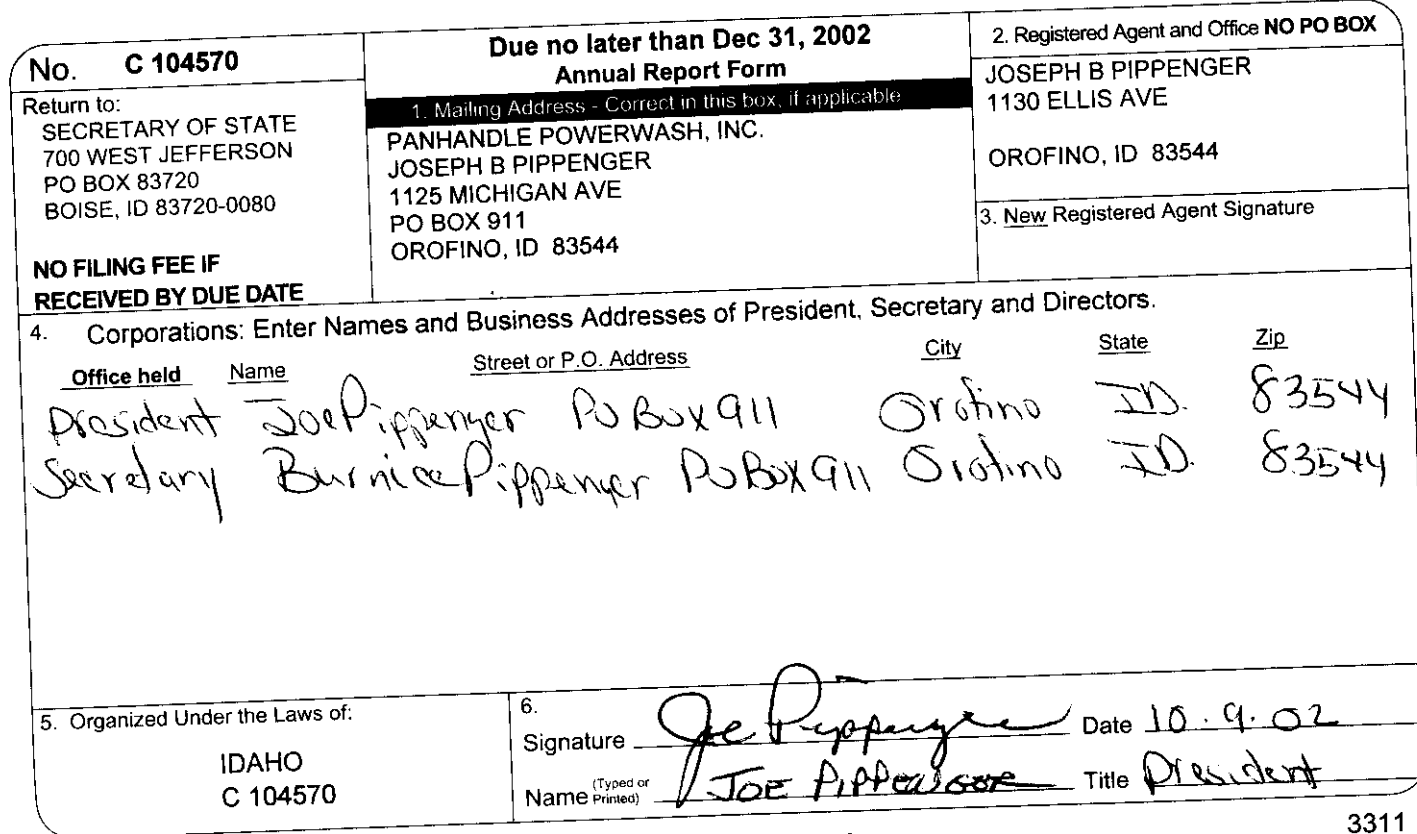 No. C 104570
Return to:
SECRETARY OF STATE
700 WEST JEFFERSON
PO BOX 83720
BOISE, ID 83720-0080
NO FILING FEE IF
RECEIVED BY DUE DATE
Due no later than Dec 31, 2002
Annual Report Form
1. Mailing Address - Correct in this box, if applicable
PANHANDLE POWERWASH, INC.
JOSEPH B PIPPENGER
1125 MICHIGAN AVE
PO BOX 911
OROFINO, ID 83544
2. Registered Agent and Office NO PO BOX
JOSEPH B PIPPENGER
1130 ELLIS AVE
OROFINO, ID 83544
3. New Registered Agent Signature
4. Corporations: Enter Names and Business Addresses of President, Secretary and Directors.
Office held Name Street or P.O. Address City State Zip
President Joe Pippenger PO Box 911 Orofino ID. 83544
Secretary Burnice Pippenger PO Box 911 Orofino ID. 83544
5. Organized Under the Laws of:
IDAHO
C 104570
6.
Signature Joe Pippenger Date 10.9.02
Name (Typed or Printed) JOE PIPPENGER Title President
3311